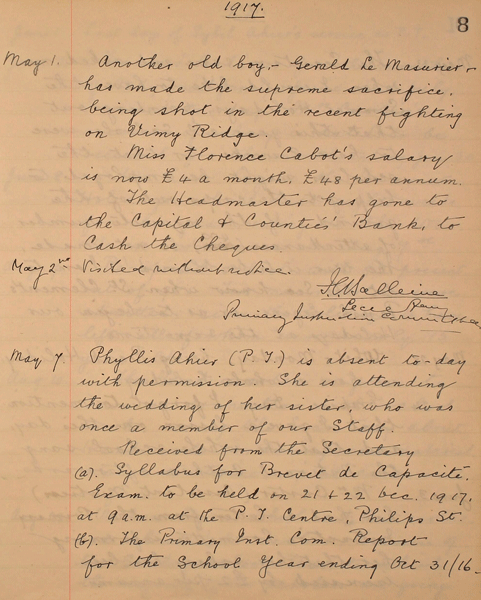 1917.
8
May 1. Another old boy,- Gerald Le Masurier -
has made the supreme sacrifice,
being shot in the recent fighting
on Vimy Ridge.
Miss Florence Cabot's salary
is now £4 a month, £48 per annum.
The Headmaster has gone to
the Capital & Counties' Bank, to
Cash the Cheques.
May 2nd Visited without notice.
Primary Instruction Committee
May 7. Phyllis Ahier (P.T.) is absent to-day
with permission. She is attending
the wedding of her sister, who was
once a member of our Staff.
Received from the Secretary
(a). Syllabus for Brevet de Capacité.
Exam. to be held on 21 & 22 Dec. 1917,
at 9 a.m. at the P.T. Centre, Philips St.
(b). The Primary Inst. Com. Report
for the School Year ending Oct 31/16.